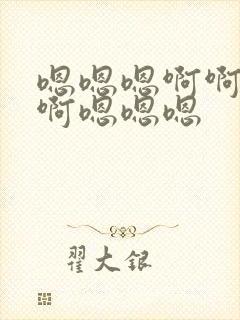 嗯嗯嗯啊啊
啊嗯嗯嗯
翟大银